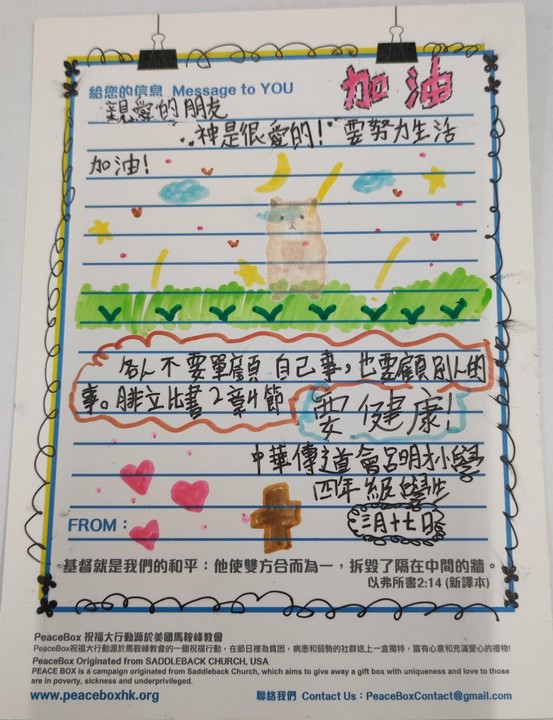 給您的信息 Message to YOU
加油
親愛的朋友
神是很愛的! 要努力生活
加油!
各人不要單顧自己事,也要顧別人的
事。腓立比書2章4節
要健康!
中華傳道會呂明才小學
四年級學生
三月十七日
FROM:
基督就是我們的和平:他使雙方合而為一,拆毀了隔在中間的牆。
以弗所書2:14 (新譯本)
PeaceBox 祝福大行動源於美國馬鞍峰教會
PeaceBox祝福大行動源於馬鞍峰教會的一個祝福行動,在節日裡為貧困,病患和弱勢的社群送上一盒獨特,富有心意和充滿愛心的禮物!
PeaceBox Originated from SADDLEBACK CHURCH, USA
PEACE BOX is a campaign originated from Saddleback Church, which aims to give away a gift box with uniqueness and love to those
are in poverty, sickness and underprivileged.
www.peaceboxhk.org 聯絡我們 Contact Us:PeaceBoxContact@gmail.com